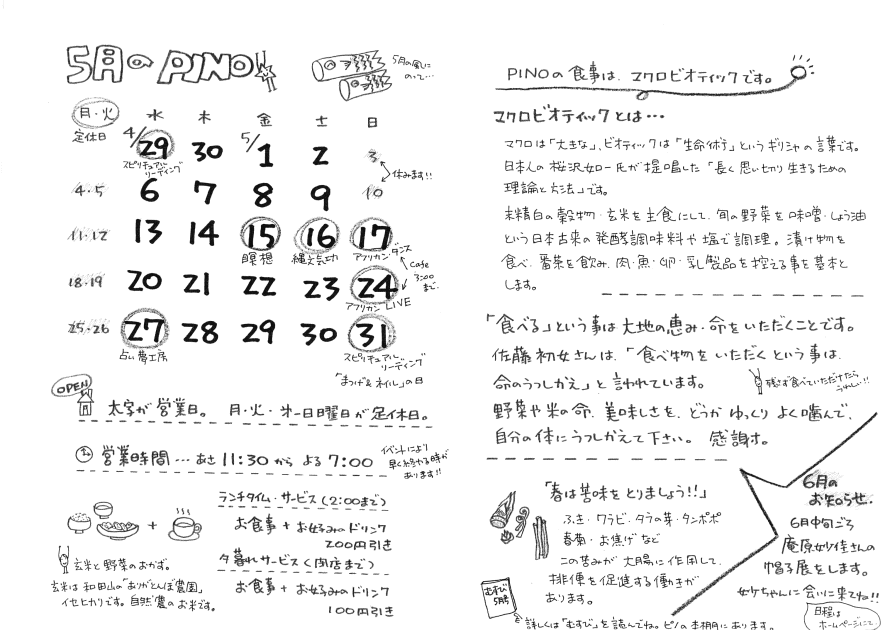 5月の PINO
5月の風に
のって…
月・火 水 木 金 土 日
定休日 4/29 30 5/1 2 3
スピリチュアル
リーディング
休みます!!
4・5 6 7 8 9 10
11・12 13 14 15 16 17
瞑想 縄文気功 アフリカンダンス
Cafe
3:00
まで
18・19 20 21 22 23 24
アフリカン LIVE
25・26 27 28 29 30 31
占い夢工房
スピリチュアル
リーディング
「まつげ&ネイル」の日
OPEN
太字が営業日。 月・火・第一日曜日が定休日。
営業時間…あさ11:30から よる7:00
イベントにより
早く終わる時が
あります!!
ランチタイム・サービス(2:00まで)
お食事+お好みのドリンク
200円引き
夕暮れサービス(閉店まで)
お食事+お好みのドリンク
100円引き
+
玄米と野菜のおかず。
玄米は和田山の「ありがとんぼ農園」
イセヒカリです。自然農のお米です。
PINOの食事は、マクロビオティックです。
マクロビオティックとは…
マクロは「大きな」、ビオティックは「生命術」というギリシャの言葉です。
日本人の桜沢如一氏が提唱した「長く思い切り生きるための
理論と方法」です。
未精白の穀物・玄米を主食にして、旬の野菜を味噌・しょう油
という日本古来の発酵調味料や塩で調理。漬け物を
食べ、番茶を飲み、肉・魚・卵・乳製品を控える事を基本と
します。
「食べる」という事は大地の恵み・命をいただくことです。
佐藤初女さんは、「食べ物をいただくという事は、
命のうつしかえ」と言われています。
残さず食べていただけたら
うれしい!!
野菜や米の命、美味しさを、どうか ゆっくり よく噛んで、
自分の体にうつしかえて下さい。 感謝。
「春は苦味をとりましょう!!」
ふき・ワラビ・タラの芽・タンポポ
春菊・お焦げ など
この苦みが 大腸に作用して、
排便を促進する働きが
あります。
むすび
5月号
詳しくは「むすび」を読んでね。ピノの本棚にあります。
6月の
お知らせ。
6月中旬ごろ
庵原妙佳さんの
帽子展をします。
妙ケちゃんに会いに来てね!!
日程は
ホームページにて